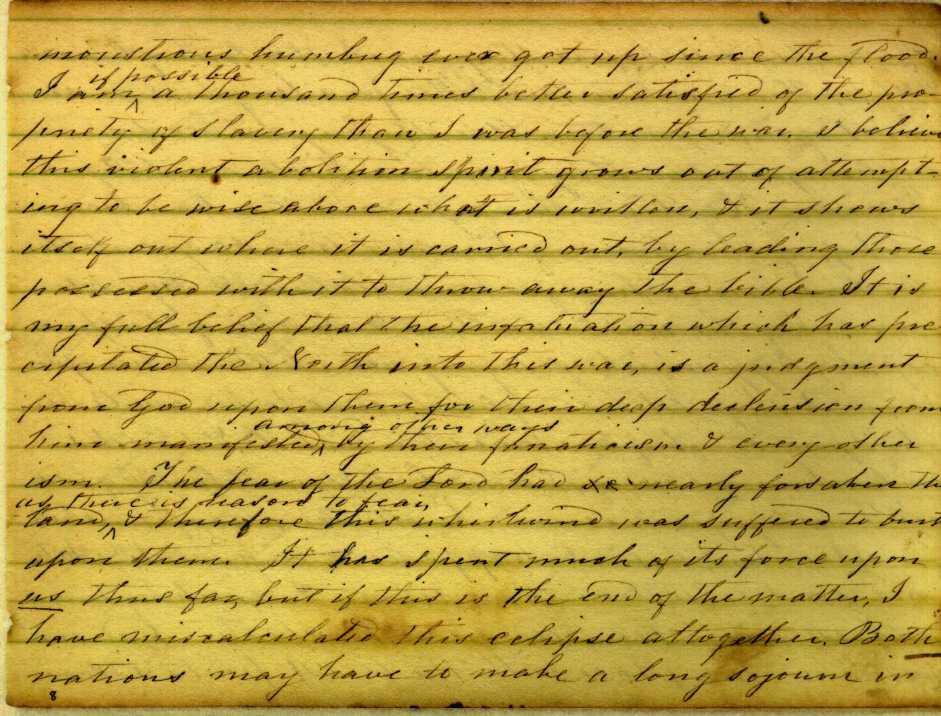 monstrous humbug ever got up since the flood.
if possible
I am ^ a thousand times better satisfied of the pro-
priety of slavery than I was before the war. I believe
this violent abolition spirit grows out of attempt-
ing to be wise above what is written, & it shows
itself out where it is carried out, by leading those
possessed with it to throw away the bible. It is
my full belief that the infatuation which has pre
cipitated the North into this war, is a judgment
from God upon them for their deep declension from
among other ways
him manifested ^ by their fanaticism & every other
ism. The fear of the Lord had nearly forsaken the
as there is reason to fear,
land, ^ & therefore this whirlwind was suffered to burst
upon them. It has spent much of its force upon
us thus far, but if this is the end of the matter, I
have miscalculated this eclipse altogether. Both
nations may have to make a long sojourn in
8